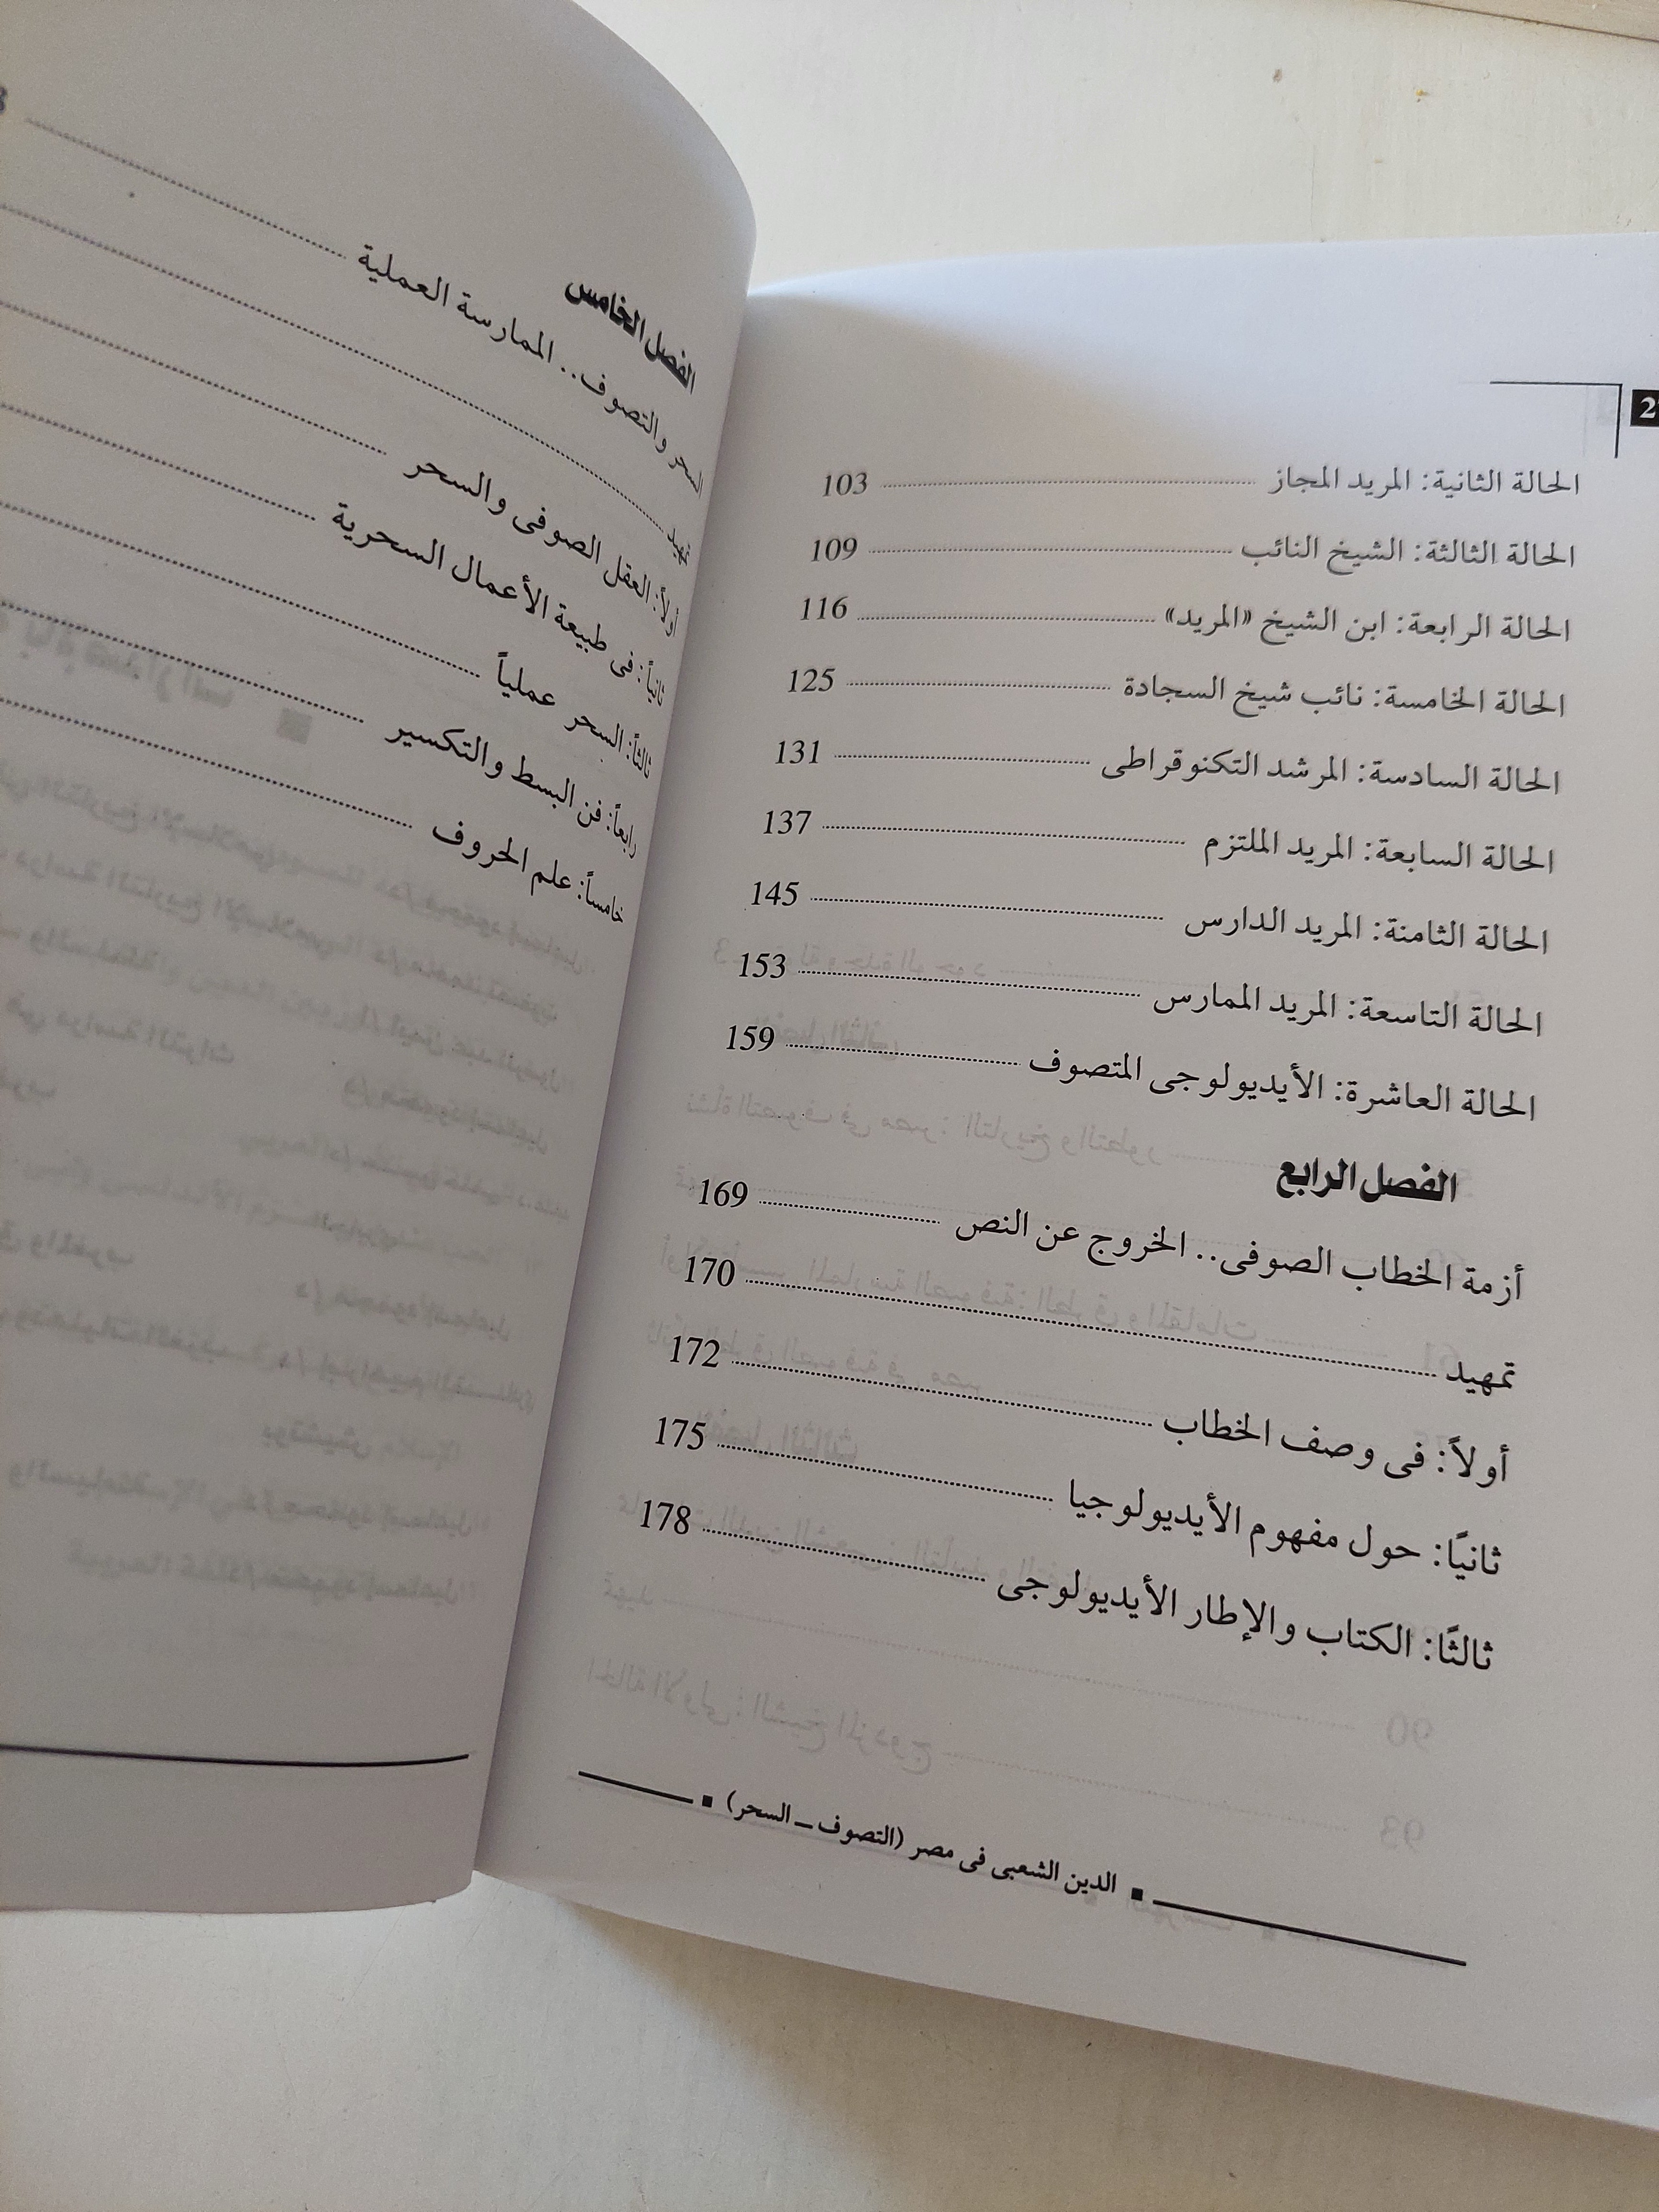 الحالة الثانية: المريد المجاز ........ 103
الحالة الثالثة: الشيخ النائب ........ 109
الحالة الرابعة: ابن الشيخ «المريد» ........ 116
الحالة الخامسة: نائب شيخ السجادة ........ 125
الحالة السادسة: المرشد التكنوقراطى ........ 131
الحالة السابعة: المريد الملتزم ........ 137
الحالة الثامنة: المريد الدارس ........ 145
الحالة التاسعة: المريد الممارس ........ 153
الحالة العاشرة: الأيديولوجى المتصوف ........ 159
الفصل الرابع
أزمة الخطاب الصوفى.. الخروج عن النص ........ 169
تمهيد ........ 170
أولاً: فى وصف الخطاب ........ 172
ثانيًا: حول مفهوم الأيديولوجيا ........ 175
ثالثًا: الكتاب والإطار الأيديولوجى ........ 178
الدين الشعبى فى مصر (التصوف ـ السحر)
الفصل الخامس
السحر والتصوف.. الممارسة العملية ........
تمهيد ........
أولاً: العقل الصوفى والسحر ........
ثانياً: فى طبيعة الأعمال السحرية ........
ثالثاً: السحر عملياً ........
رابعاً: فن البسط والتكسير ........
خامساً: علم الحروف ........